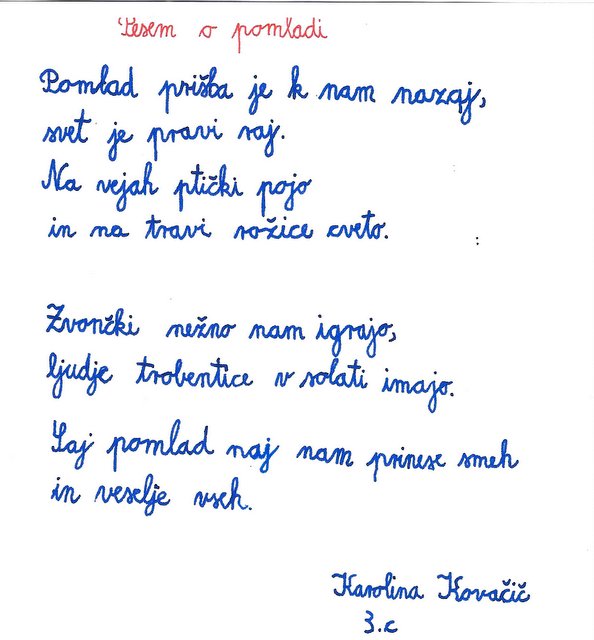 Pesem o pomladi
Pomlad prišla je k nam nazaj,
svet je pravi raj.
Na vejah ptički pojo
in na travi rožice cveto.
Zvončki nežno nam igrajo,
ljudje trobentice v solati imajo.
Saj pomlad naj nam prinese smeh
in veselje vseh.
Karolina Kovačič
3.c